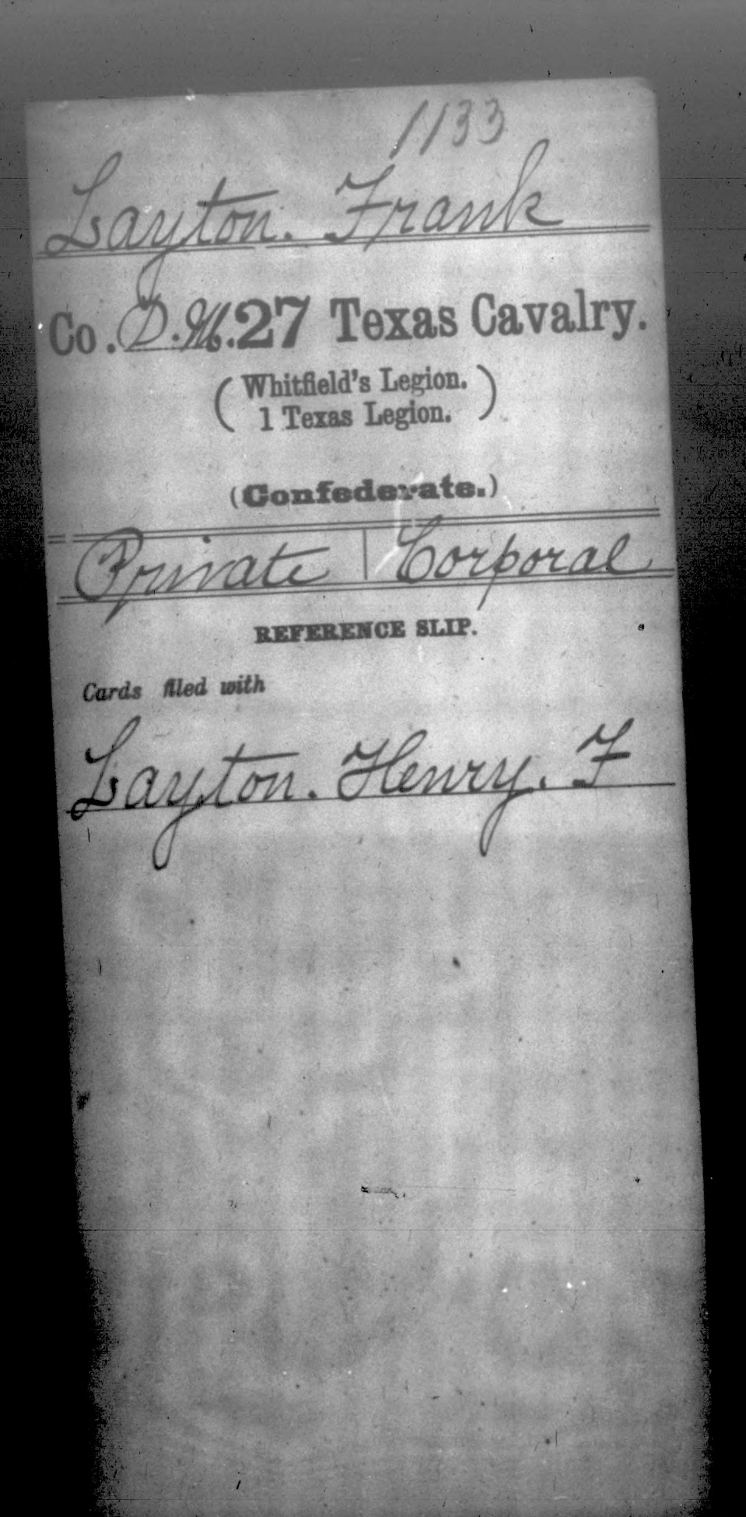 1133
Layton. Frank
Co. D. M. 27 Texas Cavalry.
(Whitfield's Legion.
1 Texas Legion.)
(Confederate.)
Private | Corporal
REFERENCE SLIP.
Cards filed with
Layton. Henry. F